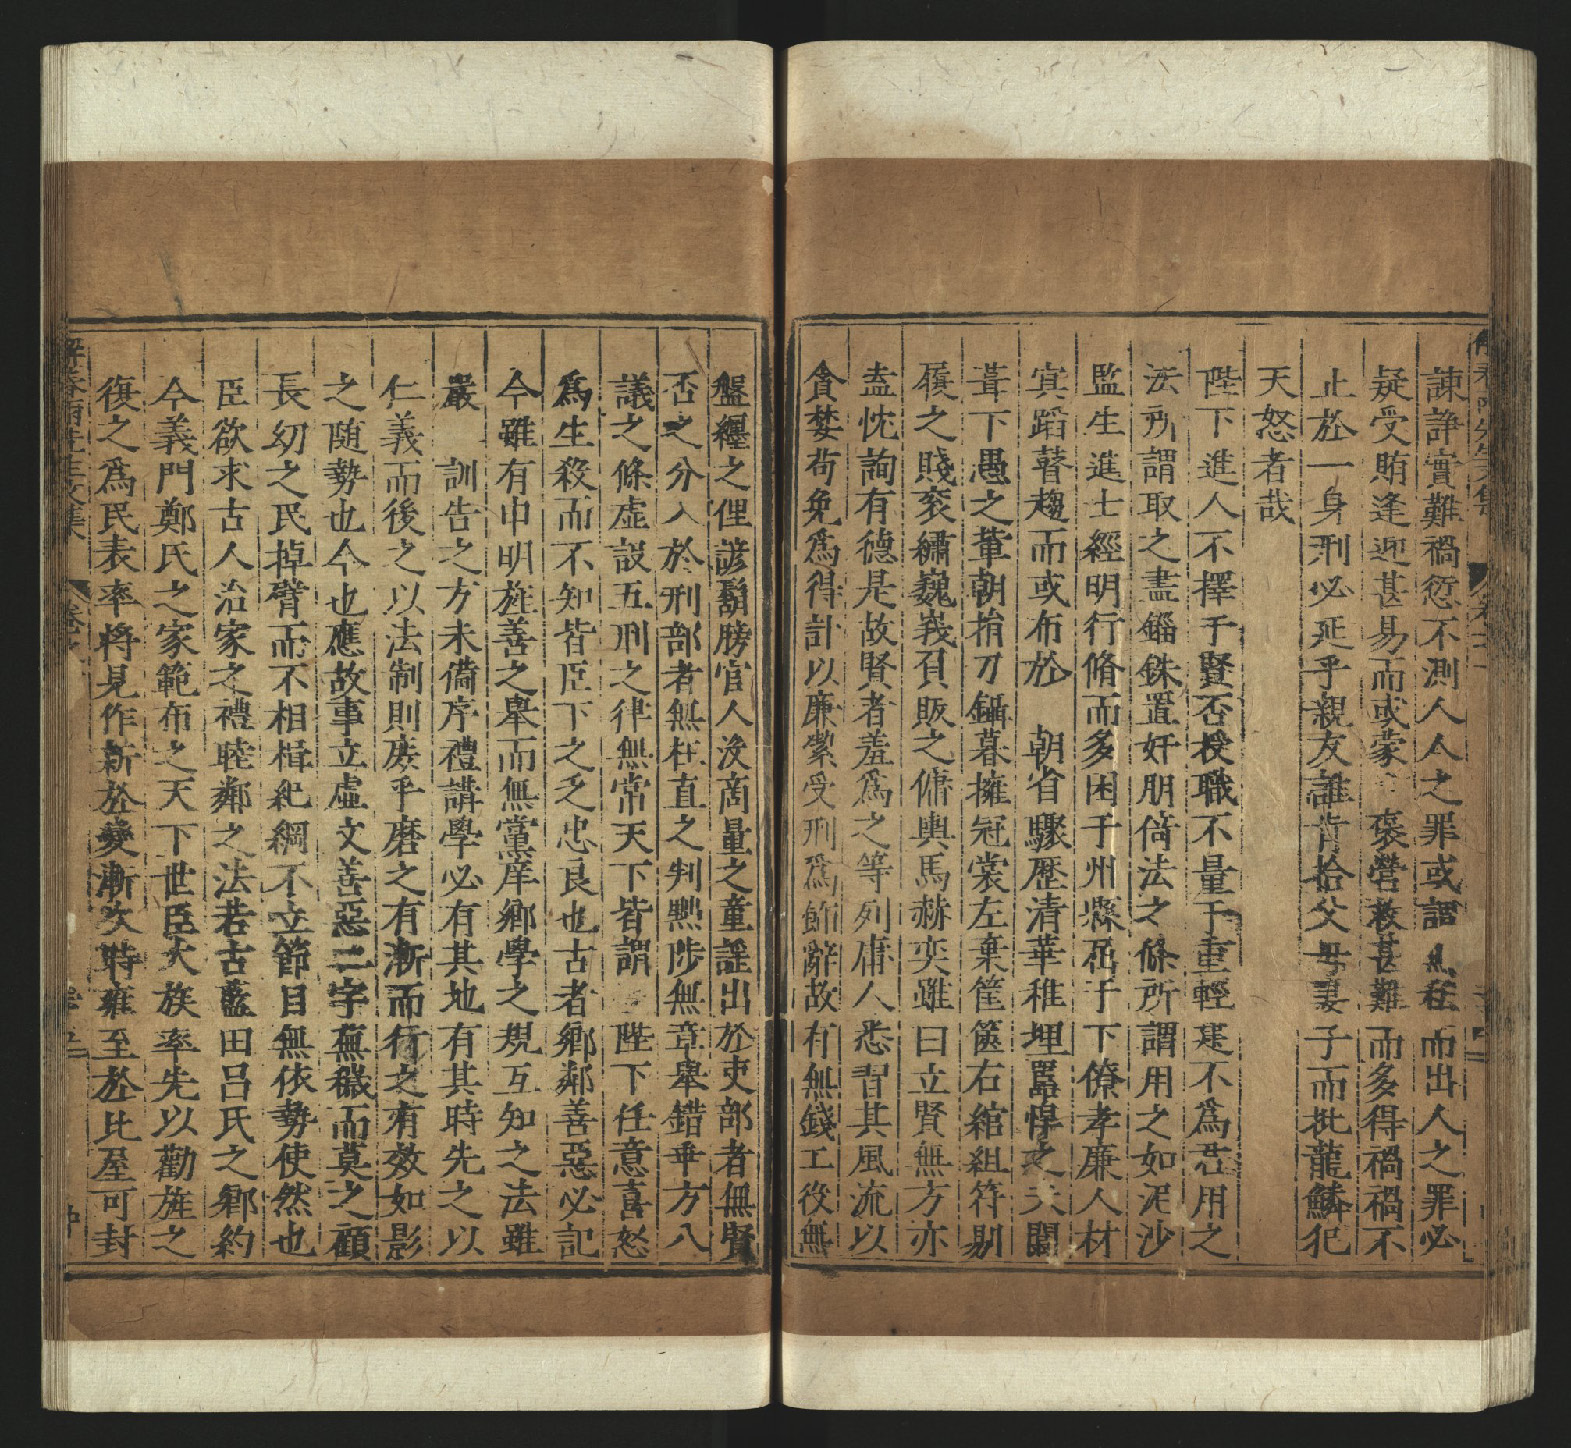 諫諍實難禍愆不測人人之罪或謂 而出人之罪必
疑受賄逢迎甚易而或蒙 褒營救甚難而多得禍禍不
止於一身刑必延乎親友誰肯捨父母妻子而批龍鱗犯
天怒者哉
陛下進人不擇于賢否授職不量于重輕建不爲君用之
法所謂取之盡錙銖置奸朋倚法之條所謂用之如泥沙
監生進士經明行脩而多困于州縣屈于下僚孝廉人材
冥蹈瞽趨而或布於 朝省驟歷清華稚埋嚚悍之夫闒
茸下愚之輩朝捐刀鑷暮擁冠裳左棄筐篋右綰組符剔
履之賤衮繡巍峩負販之傭輿馬赫奕雖曰立賢無方亦
盍忱詢有德是故賢者羞爲之等列庸人悉習其風流以
貪婪苟免爲得計以廉潔受刑爲飾辭故有無錢工役無
盤纏之俚諺鬍勝官人沒商量之童謡出於吏部者無賢
否之分入於刑部者無枉直之判黜陟無章舉錯乖方八
議之條虛設五刑之律無常天下皆謂 陛下任意喜怒
爲生殺而不知皆臣下之乏忠良也古者鄉鄰善惡必記
今雖有申明旌善之舉而無黨庠鄉學之規互知之法雖
嚴 訓告之方未備序禮講學必有其地有其時先之以
仁義而後之以法制則庶乎磨之有漸而行之有效如影
之隨勢也今也應故事立虛文善惡二字蕪穢而莫之顧
長幼之民掉臂而不相楫紀綱不立節目無依勢使然也
臣欲求古人治家之禮睦鄰之法若古藍田呂氏之鄉約
今義門鄭氏之家範布之天下世臣大族率先以勸旌之
復之爲民表率將見作新於變漸次時雍至於比屋可封